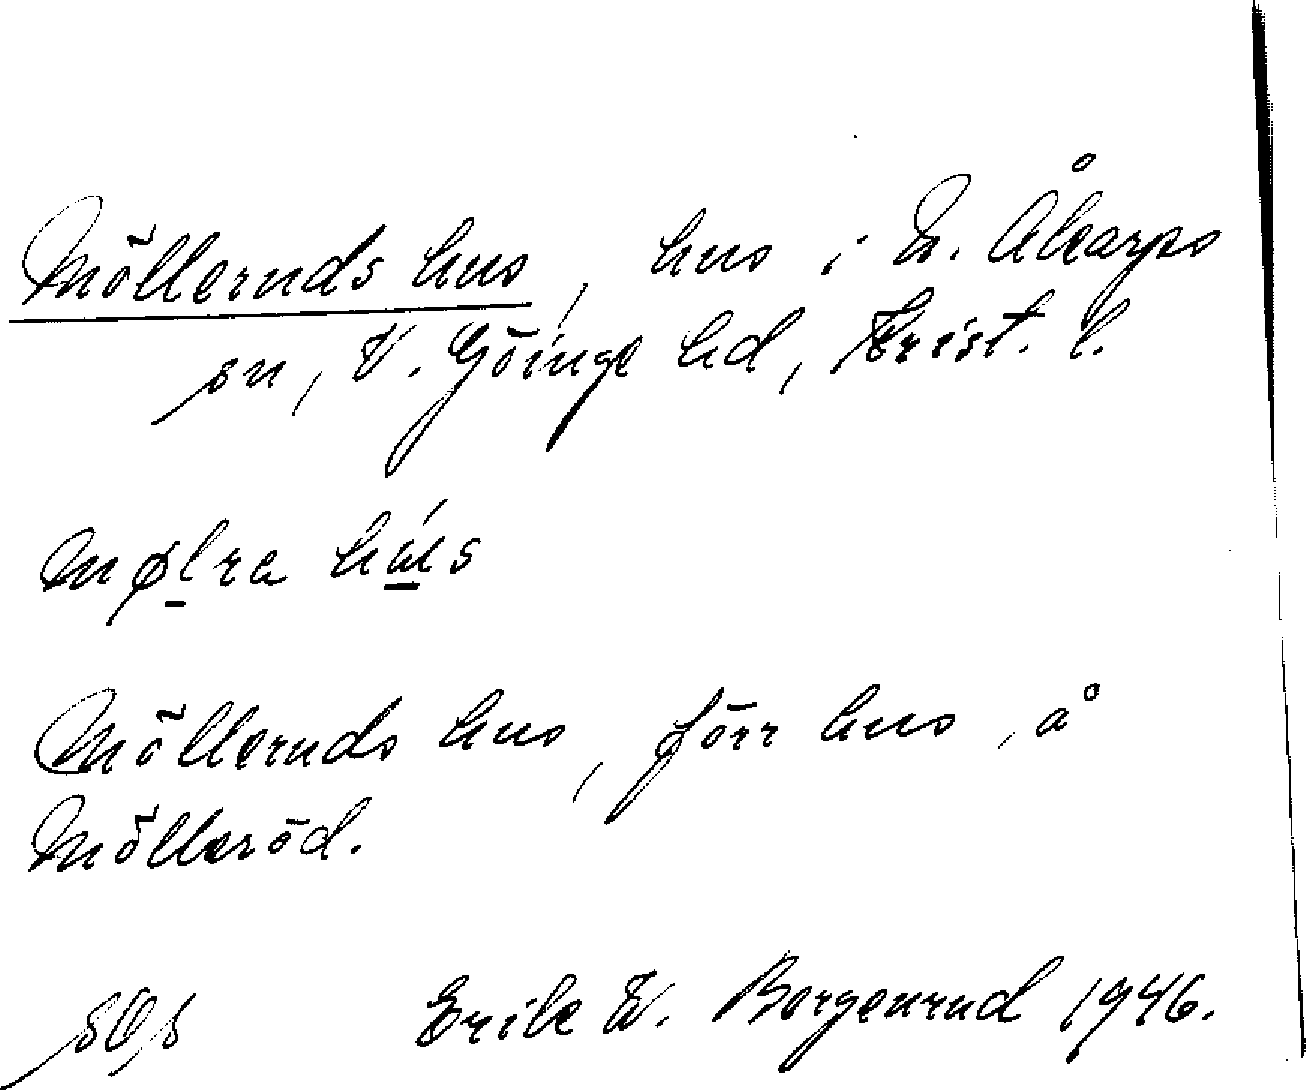 Möllernds hus, hus i N. Åkarps
sn, V. Göinge hd, Krist. l.
mølra hús
Möllernds hus, förr hus, å
Mölleröd.
Erik W. Borgenrud 1946.